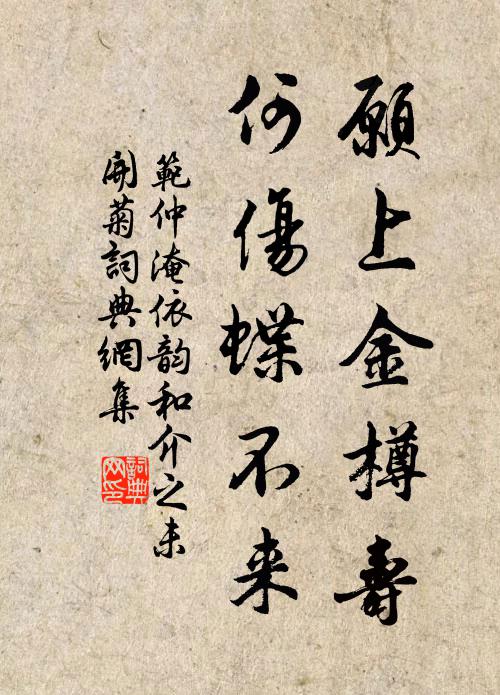 願上金樽壽
何傷蝶不来
範仲淹依韵和介之未
開菊詞典網集
詞典
网印